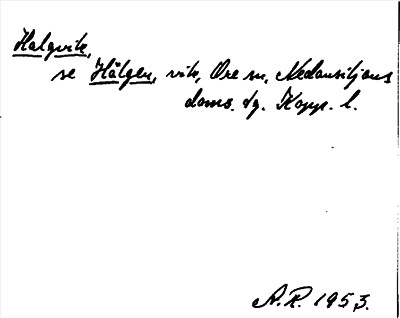 Halgvik,
se Hälgen, vik, Ore sn, Nedansiljans
doms. sg. Kopp. l.
A.R. 1953.